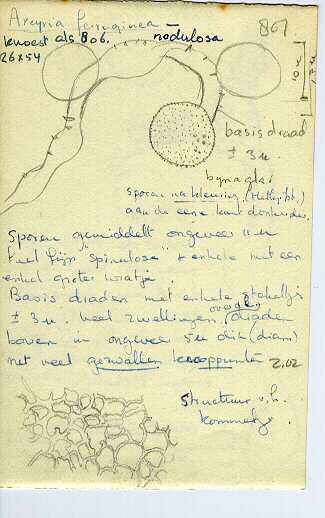 Arcyria ferruginea – 801.
knoest als 806. nodulosa
26x54
basis draad
± 3 u
byna glad
sporen na kleuring (Methylbl.)
aan de eene kant donkerder.
sporen gemiddelt ongeveer 11 u
heel fijn "spinulose" + enkele met een
enkel groter wratje.
Basis draden met enkele stekeltjes
± 3 u. heel zwellingen, overal
draden
boven in ongeveer 5 u dik (diam)
net veel gezwollen knooppunten 2.02
Structuur v.h.
kommetje.